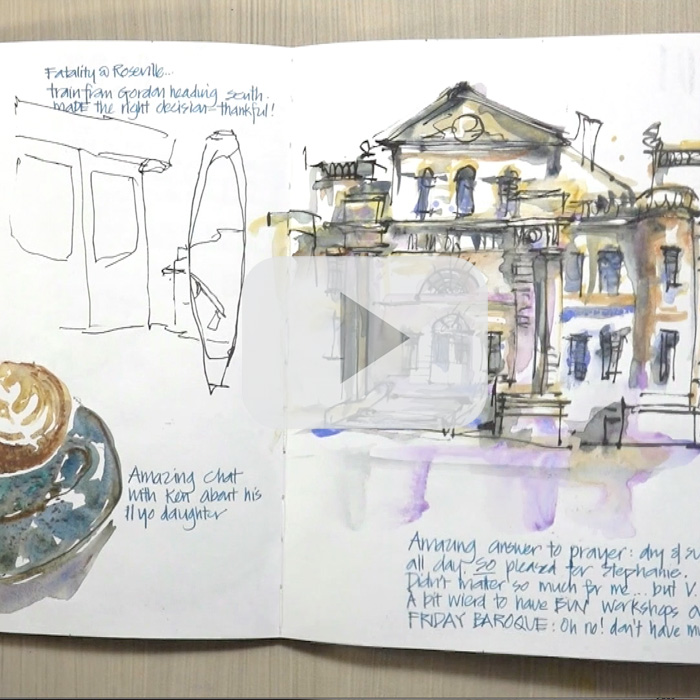 Fatality @ Roseville...
train from Gordon heading south.
made the right decision - thankful!
Amazing chat
with Ken about his
11 yo daughter
Amazing answer to prayer: dry & su
all day. SO pleased for Stephanie.
Didn't matter so much for me... but V.
A bit wierd to have BUN workshops o
FRIDAY BAROQUE: Oh no! don't have mu